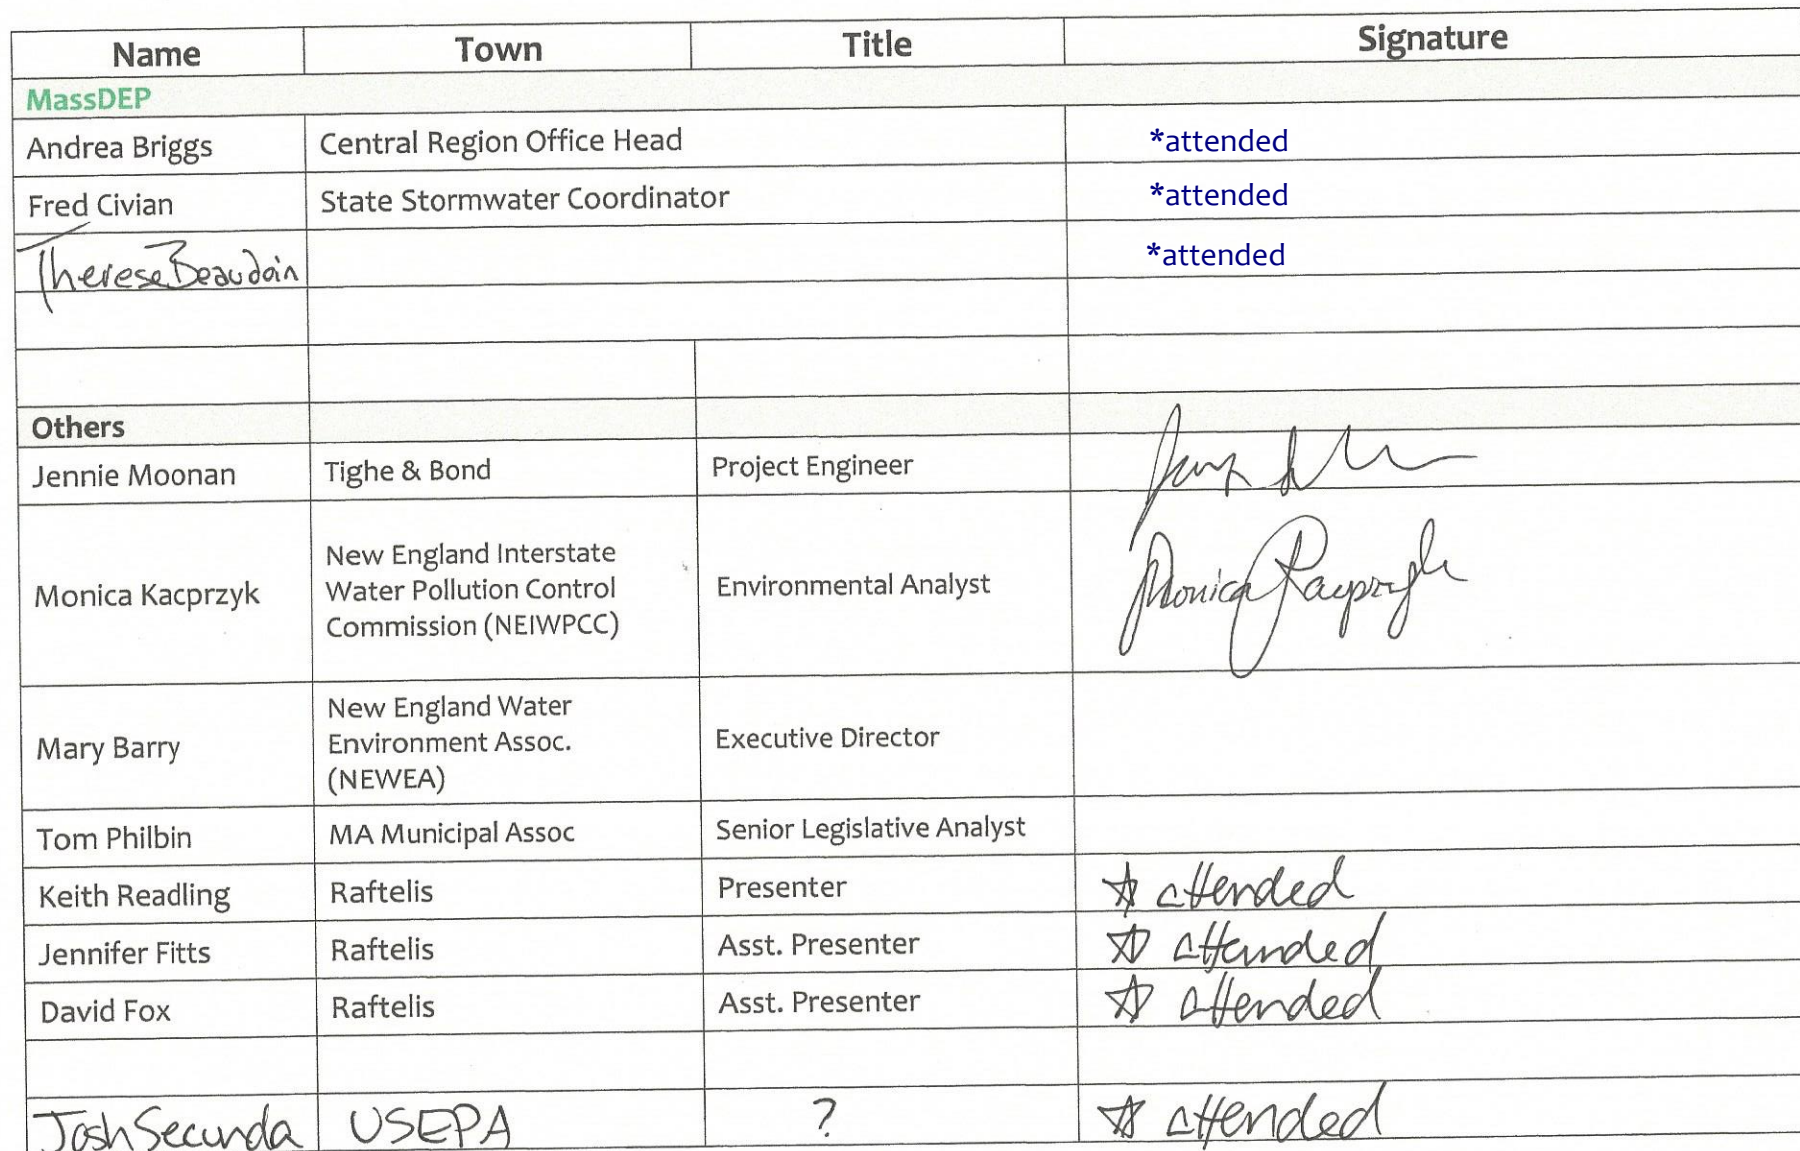 Name Town Title Signature
MassDEP
Andrea Briggs Central Region Office Head *attended
Fred Civian State Stormwater Coordinator *attended
Therese Beaudoin *attended
Others
Jennie Moonan Tighe & Bond Project Engineer
New England Interstate
Monica Kacprzyk Water Pollution Control Environmental Analyst Monica Kacprzyk
Commission (NEIWPCC)
New England Water
Mary Barry Environment Assoc. Executive Director
(NEWEA)
Tom Philbin MA Municipal Assoc Senior Legislative Analyst
Keith Readling Raftelis Presenter ☆ attended
Jennifer Fitts Raftelis Asst. Presenter ☆ attended
David Fox Raftelis Asst. Presenter ☆ attended
Josh Secunda USEPA ? ☆ attended